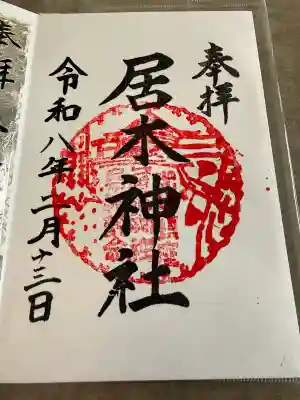 奉拝
居木神社
令和八年二月十三日